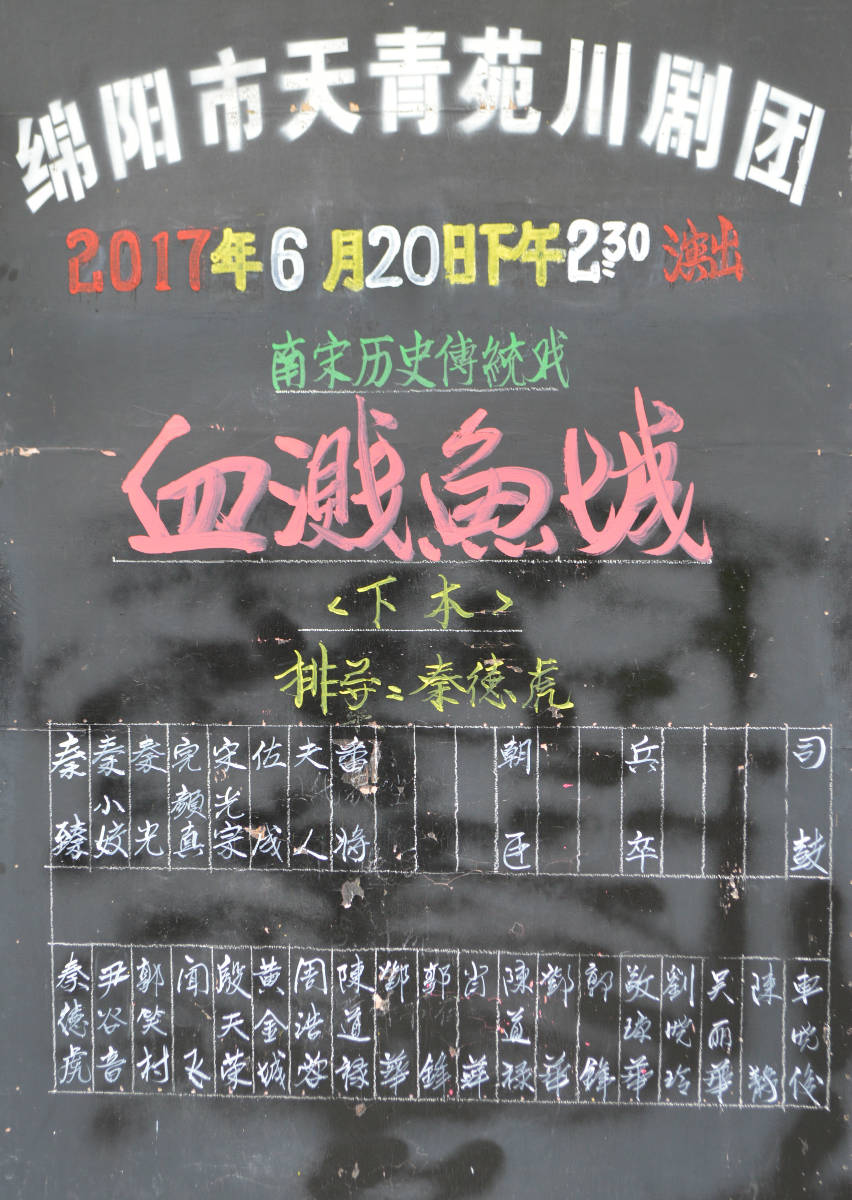 绵阳市天青苑川剧团
2017年6月20日下午2:30演出
南宋历史傳統戏
血溅魚城
<下本>
排导:秦德虎
秦臻 秦小姣 秦光 完颜真 宋光宗 佐成 夫人 番将 朝臣 兵卒 司鼓
秦德虎 尹谷音 郭笑村 闻飞 殷天荣 黄金城 周浩蓉 陳道禄 鄧華 郭鋒 肖萍 陳道禄 鄧華 郭鋒 敬琼華 劉晓玲 吴丽華 陳静 車晓俊